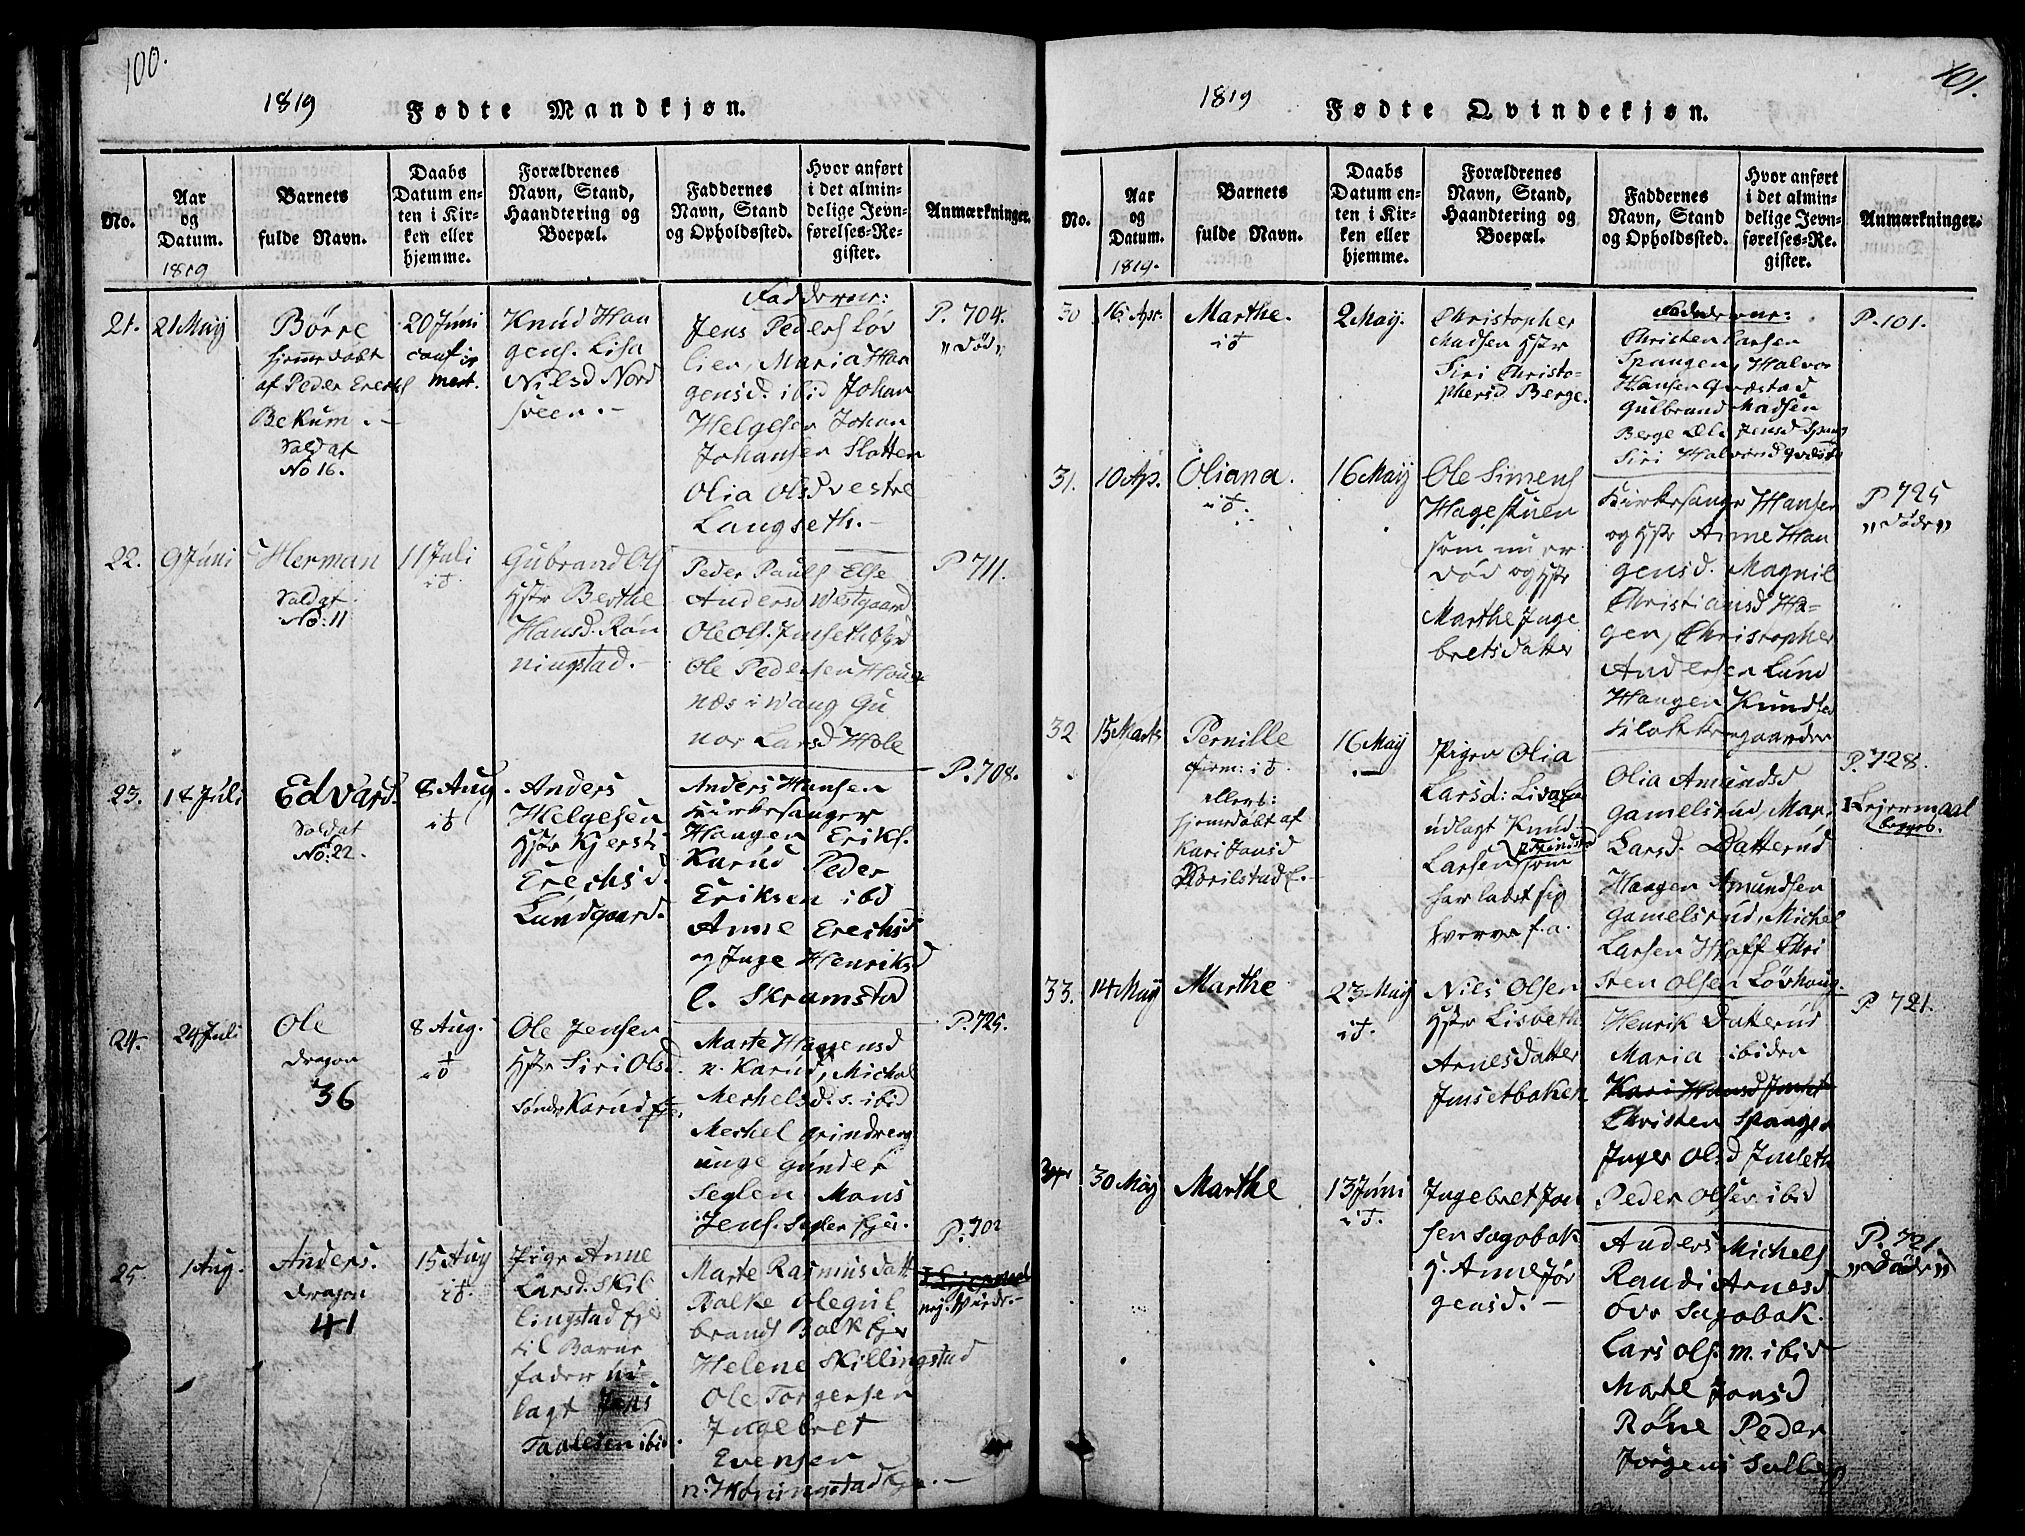 100.
1819 Fødte Mandkjøn.
No.
Aar og Datum.
1819
Barnets fulde Navn.
Daabs Datum enten i Kirken eller hjemme.
Forældrenes Navn, Stand, Haandtering og Boepæl.
Faddernes Navn, Stand og Opholdssted.
Hvor anført i det almindelige Jevnførelses-Register.
Anmærkninger.
21.
21 Maij
Børre
hjemedøbt
af Peder Erechs
Bekum.
Soldat
No 16.
20 Juni
confir
mert.
Knud Han
gens. Lisa
Nilsd Nord
sveen.
Faddere:
Jens Peders Løv
lien, Maria Han
gensd. ibid Johan
Helgesen Johan
Johansen Slatten
Olia Olsd vestre
Langseth.
P. 704.
"død"
22.
9 Juni
Herman
Soldat
No: 11
11 Juli
Gubrand Ols
Hstr Berthe
Hansd. Røn
ningstad.
Peder Pauls Else
Andersd Westgaard
Ole Ols. Imseth
Ole Pedersen Houg
næs i Wang Gu
nor Larsd Hole
P 711.
23.
14 Juli
Edvard.
Soldat
No: 22.
8 Aug.
Anders
Helgesen
Hstr Kjersti
Erechsd.
Lundgaard.
Anders Hansen
Kirkesanger
Haagen Eriks.
Karud Peder
Eriksen ibd
Anne Erechsd
og Inge Henriksd
l. Skramstad
P. 708.
24.
24 Juli
Ole
Dragon
36
8 Aug.
Ole Jensen
Hstr Siri Olsd.
Søndr Karud Eje.
Marte Hagensd
n. Karud, Michel
Mechelsd. s. ibid
Mechel Grindreng
unge Gunder
Seglen Mons
Jens. Segler Ejer.
P. 725.
25.
1 Aug.
Anders.
Dragon
41
15 Aug
Pige Anne
Larsd. Skil
lingstad Eje
til Barne
fader ud
lagt Jens
Taalesen ibid.
Marte Rasmusdatt
Balke Ole Gul
brands Balk Eje
Helene Skillingstad
Ole Torgersen
Ingebret
Evensen
n. Køningstad Eje.
P. 702
101.
1819 Fødte Qvindekjøn.
No.
Aar og Datum.
1819.
Barnets fulde Navn.
Daabs Datum enten i Kirken eller hjemme.
Forældrenes Navn, Stand, Haandtering og Boepæl.
Faddernes Navn, Stand og Opholdssted.
Hvor anført i det almindelige Jevnførelses-Register.
Anmærkninger.
30
16 Apr.
Marthe.
2 Maij.
Christopher
Madsen Hstr
Siri Christo-
phersd Berge.
Fadderne:
Christen Larsen
Spangen, Halvor
Hansen Qvæstad
Gulbrand Madsen
Berge Jensd Spang
Siri Halvorsd Qvæsta
P. 101.
31.
10 Ap.
Oliana.
16 Maij
Ole Simens
Hagestuen
som nu er
død og Hstr
Marthe Inge
bretsdatter
Kirkesanger Hansen
og Hstr Anne Han
gensd. Magnil
Christiansd Ha-
gen, Christopher
Andersen Lund
Haagen Knudsen
Klokkergaarden
P 725
"døde"
32
15 Marts
Pernille
hjemdøbt af
Kari Jansd
16 Maij
Pigen Olia
Larsd: Lisa
udlagt Knud
Larsen Grindstad
som
har ladet sig
hverve f. a.
Olia Amundsd
Gamelsrud, Mari
Larsd. Datterud
Haagen Amundsen
Gamelsrud, Michel
Larsen Hoff Chri
sten Olsen Løvhaug.
P. 728.
1 Lejermaal
begges.
33.
14 Maij
Marthe
23 Maij
Nils Olsen
Hstr Lisbeth
Arnesdatter
Imsetbaken
Henrik Datterud
Maria ibiden
Kari Hansd Imset
Christen Spangen
Inger Olsd Imseth
Peder Olsen ibid
P 721.
34
30 Maij
Marthe
13 Juni
Ingebret Jon
sen Sagobak
H. Anne Jør
gensd.
Anders Michels
Randi Arnesd
øvr Sagobak.
Lars Ols. m. ibid
Marte Jonsd
Røne Peder
Jørgens Solberg
P. 721.
"Døde"